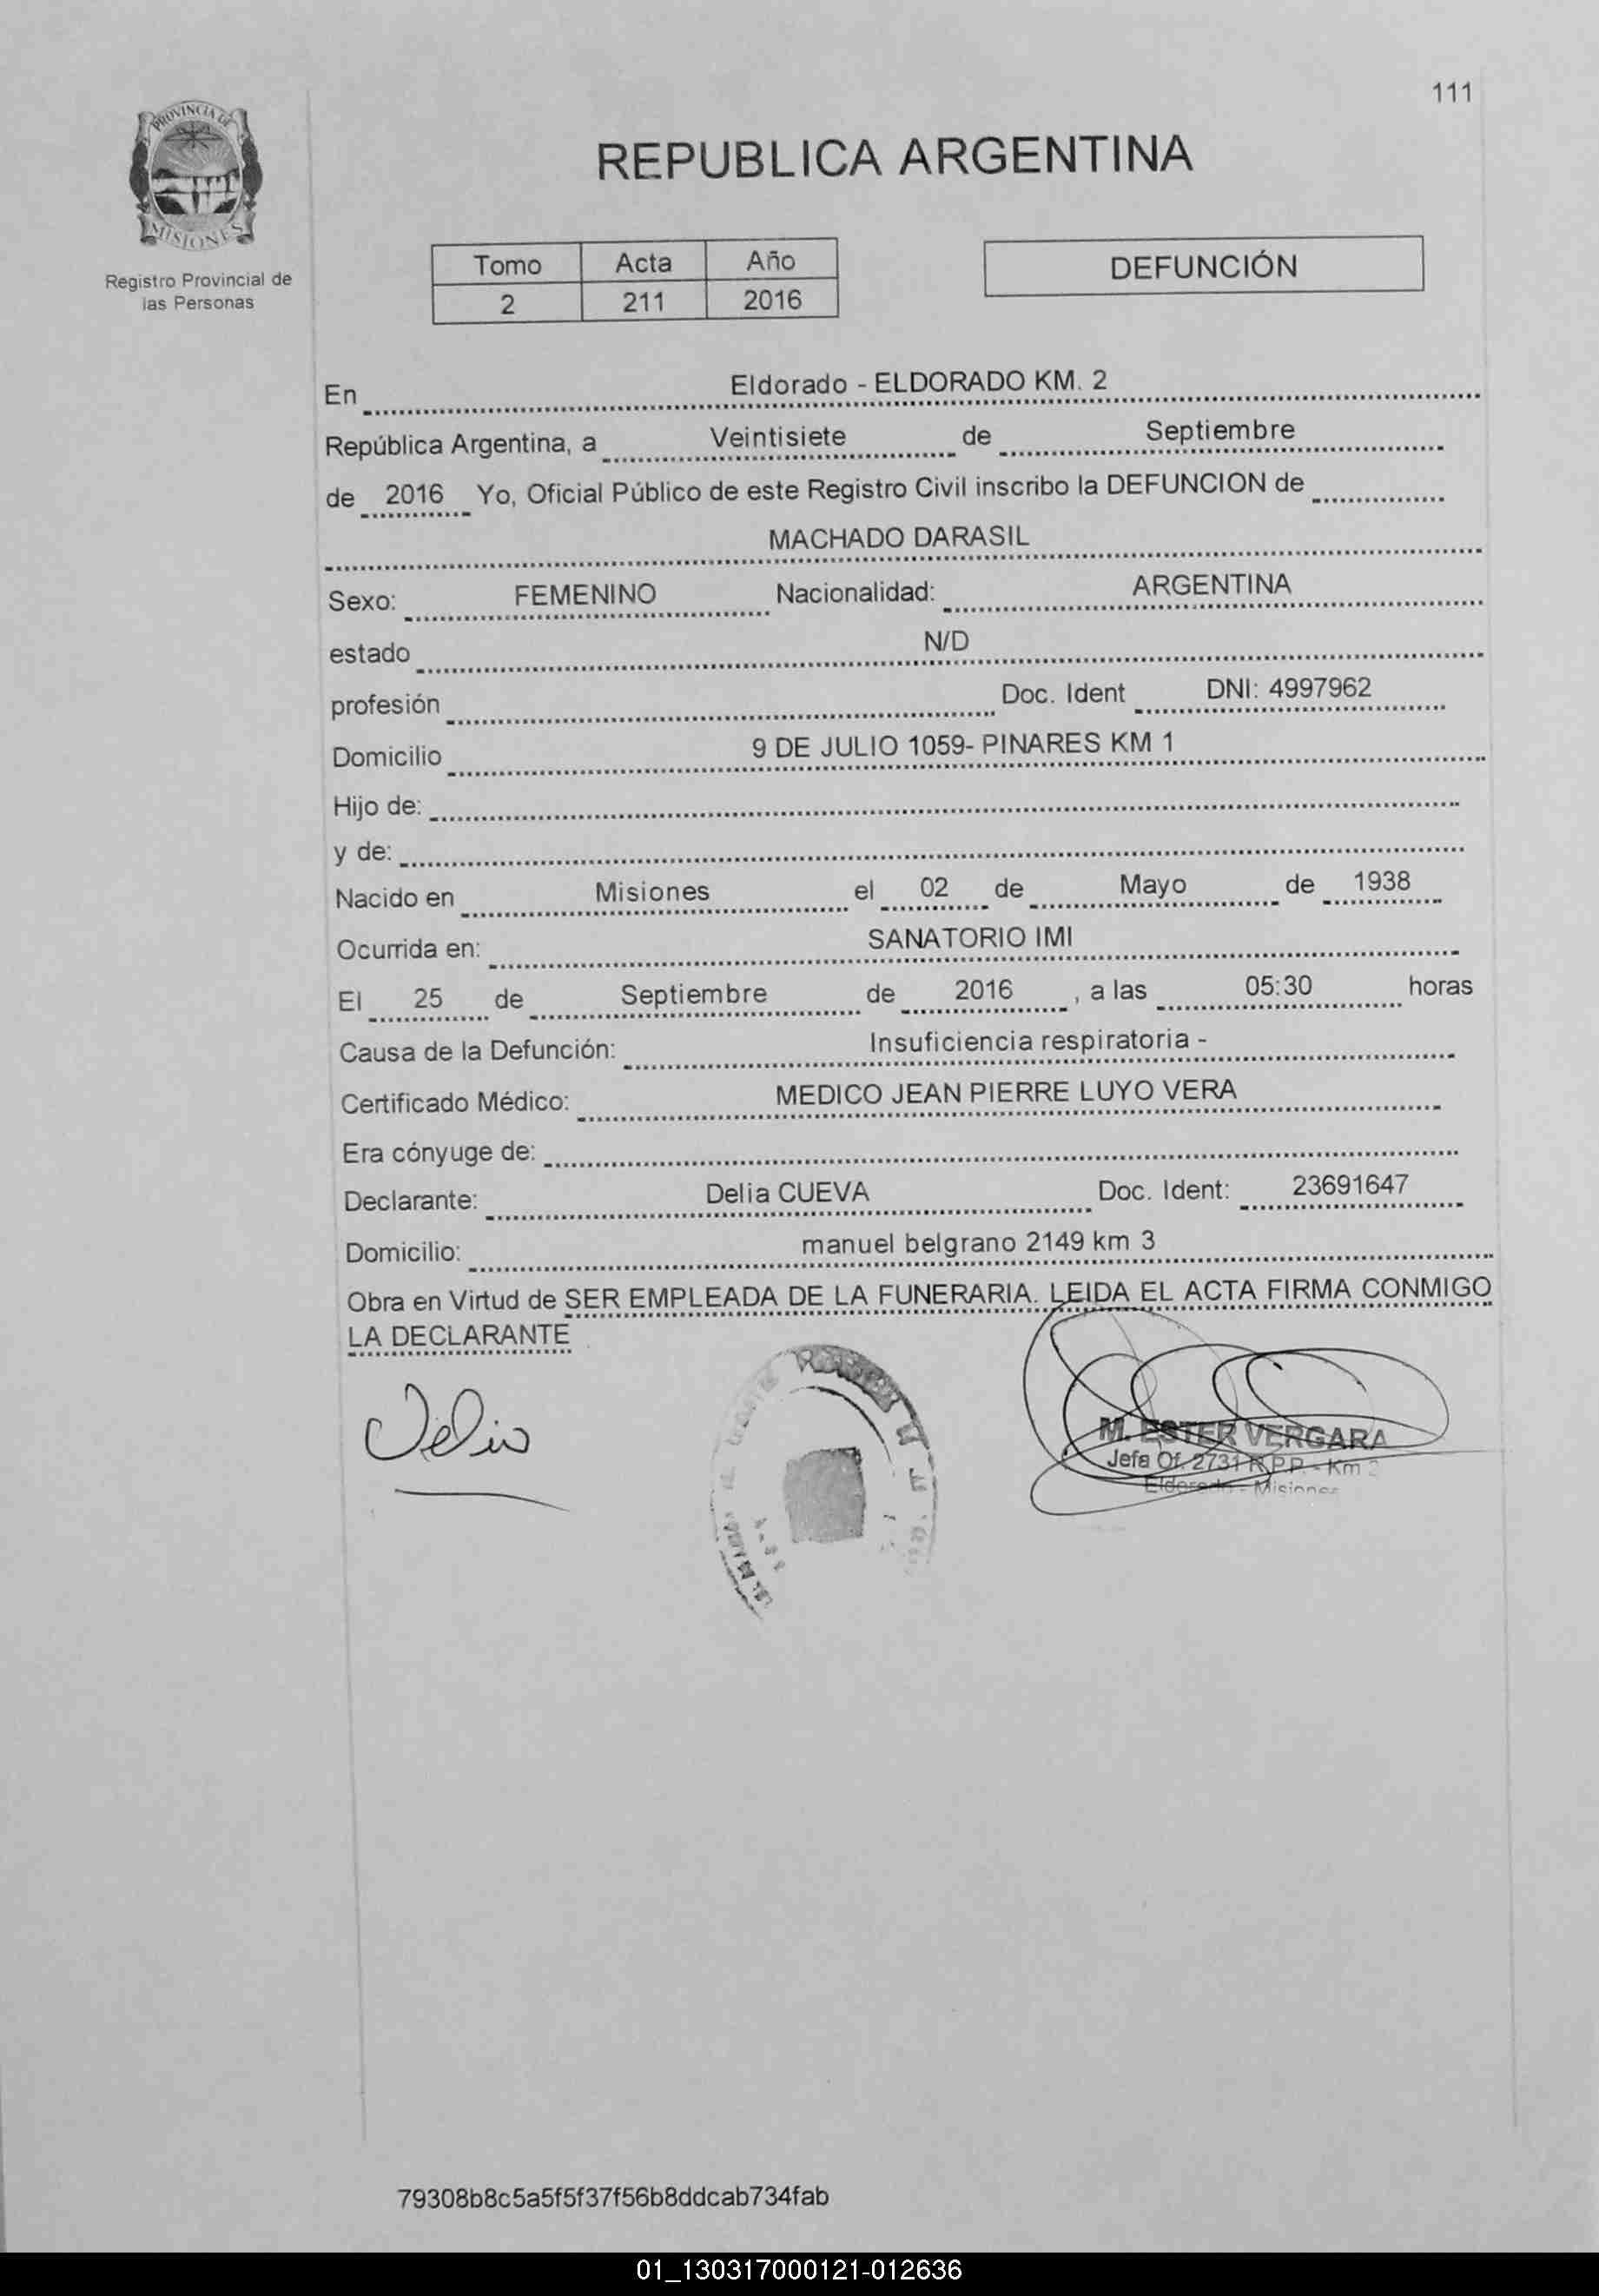 111
PROVINCIA DE
MISIONES
Registro Provincial de
las Personas
REPUBLICA ARGENTINA
Tomo Acta Año
2 211 2016
DEFUNCIÓN
En Eldorado - ELDORADO KM. 2
República Argentina, a Veintisiete de Septiembre
de 2016 Yo, Oficial Público de este Registro Civil inscribo la DEFUNCION de
MACHADO DARASIL
Sexo: FEMENINO Nacionalidad: ARGENTINA
estado N/D
profesión Doc. Ident DNI: 4997962
Domicilio 9 DE JULIO 1059- PINARES KM 1
Hijo de:
y de:
Nacido en Misiones el 02 de Mayo de 1938
Ocurrida en: SANATORIO IMI
El 25 de Septiembre de 2016 , a las 05:30 horas
Causa de la Defunción: Insuficiencia respiratoria -
Certificado Médico: MEDICO JEAN PIERRE LUYO VERA
Era cónyuge de:
Declarante: Delia CUEVA Doc. Ident: 23691647
Domicilio: manuel belgrano 2149 km 3
Obra en Virtud de SER EMPLEADA DE LA FUNERARIA. LEIDA EL ACTA FIRMA CONMIGO
LA DECLARANTE
Delia
M. ESTER VERGARA
Jefa Of. 2731 R.P.P. - Km 2
Eldorado - Misiones
79308b8c5a5f5f37f56b8ddcab734fab
01_130317000121-012636